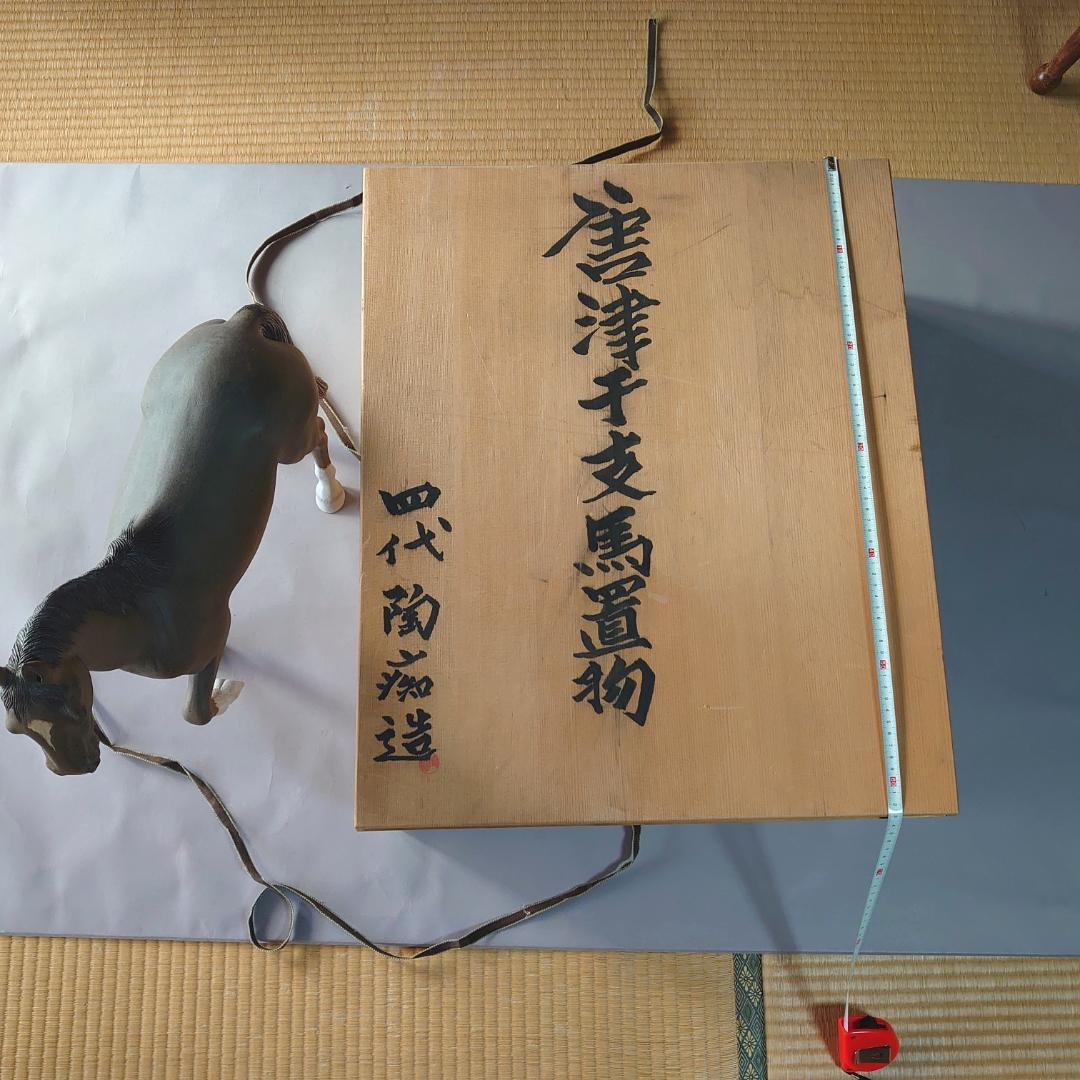 唐津干支馬置物
四代陶痴造